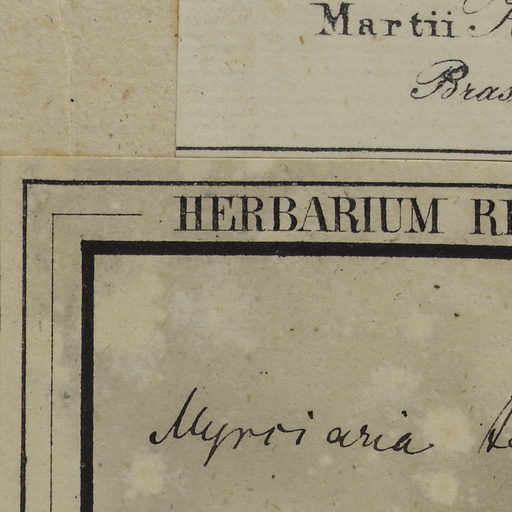 Martii
Bras
HERBARIUM RE
Myrciaria